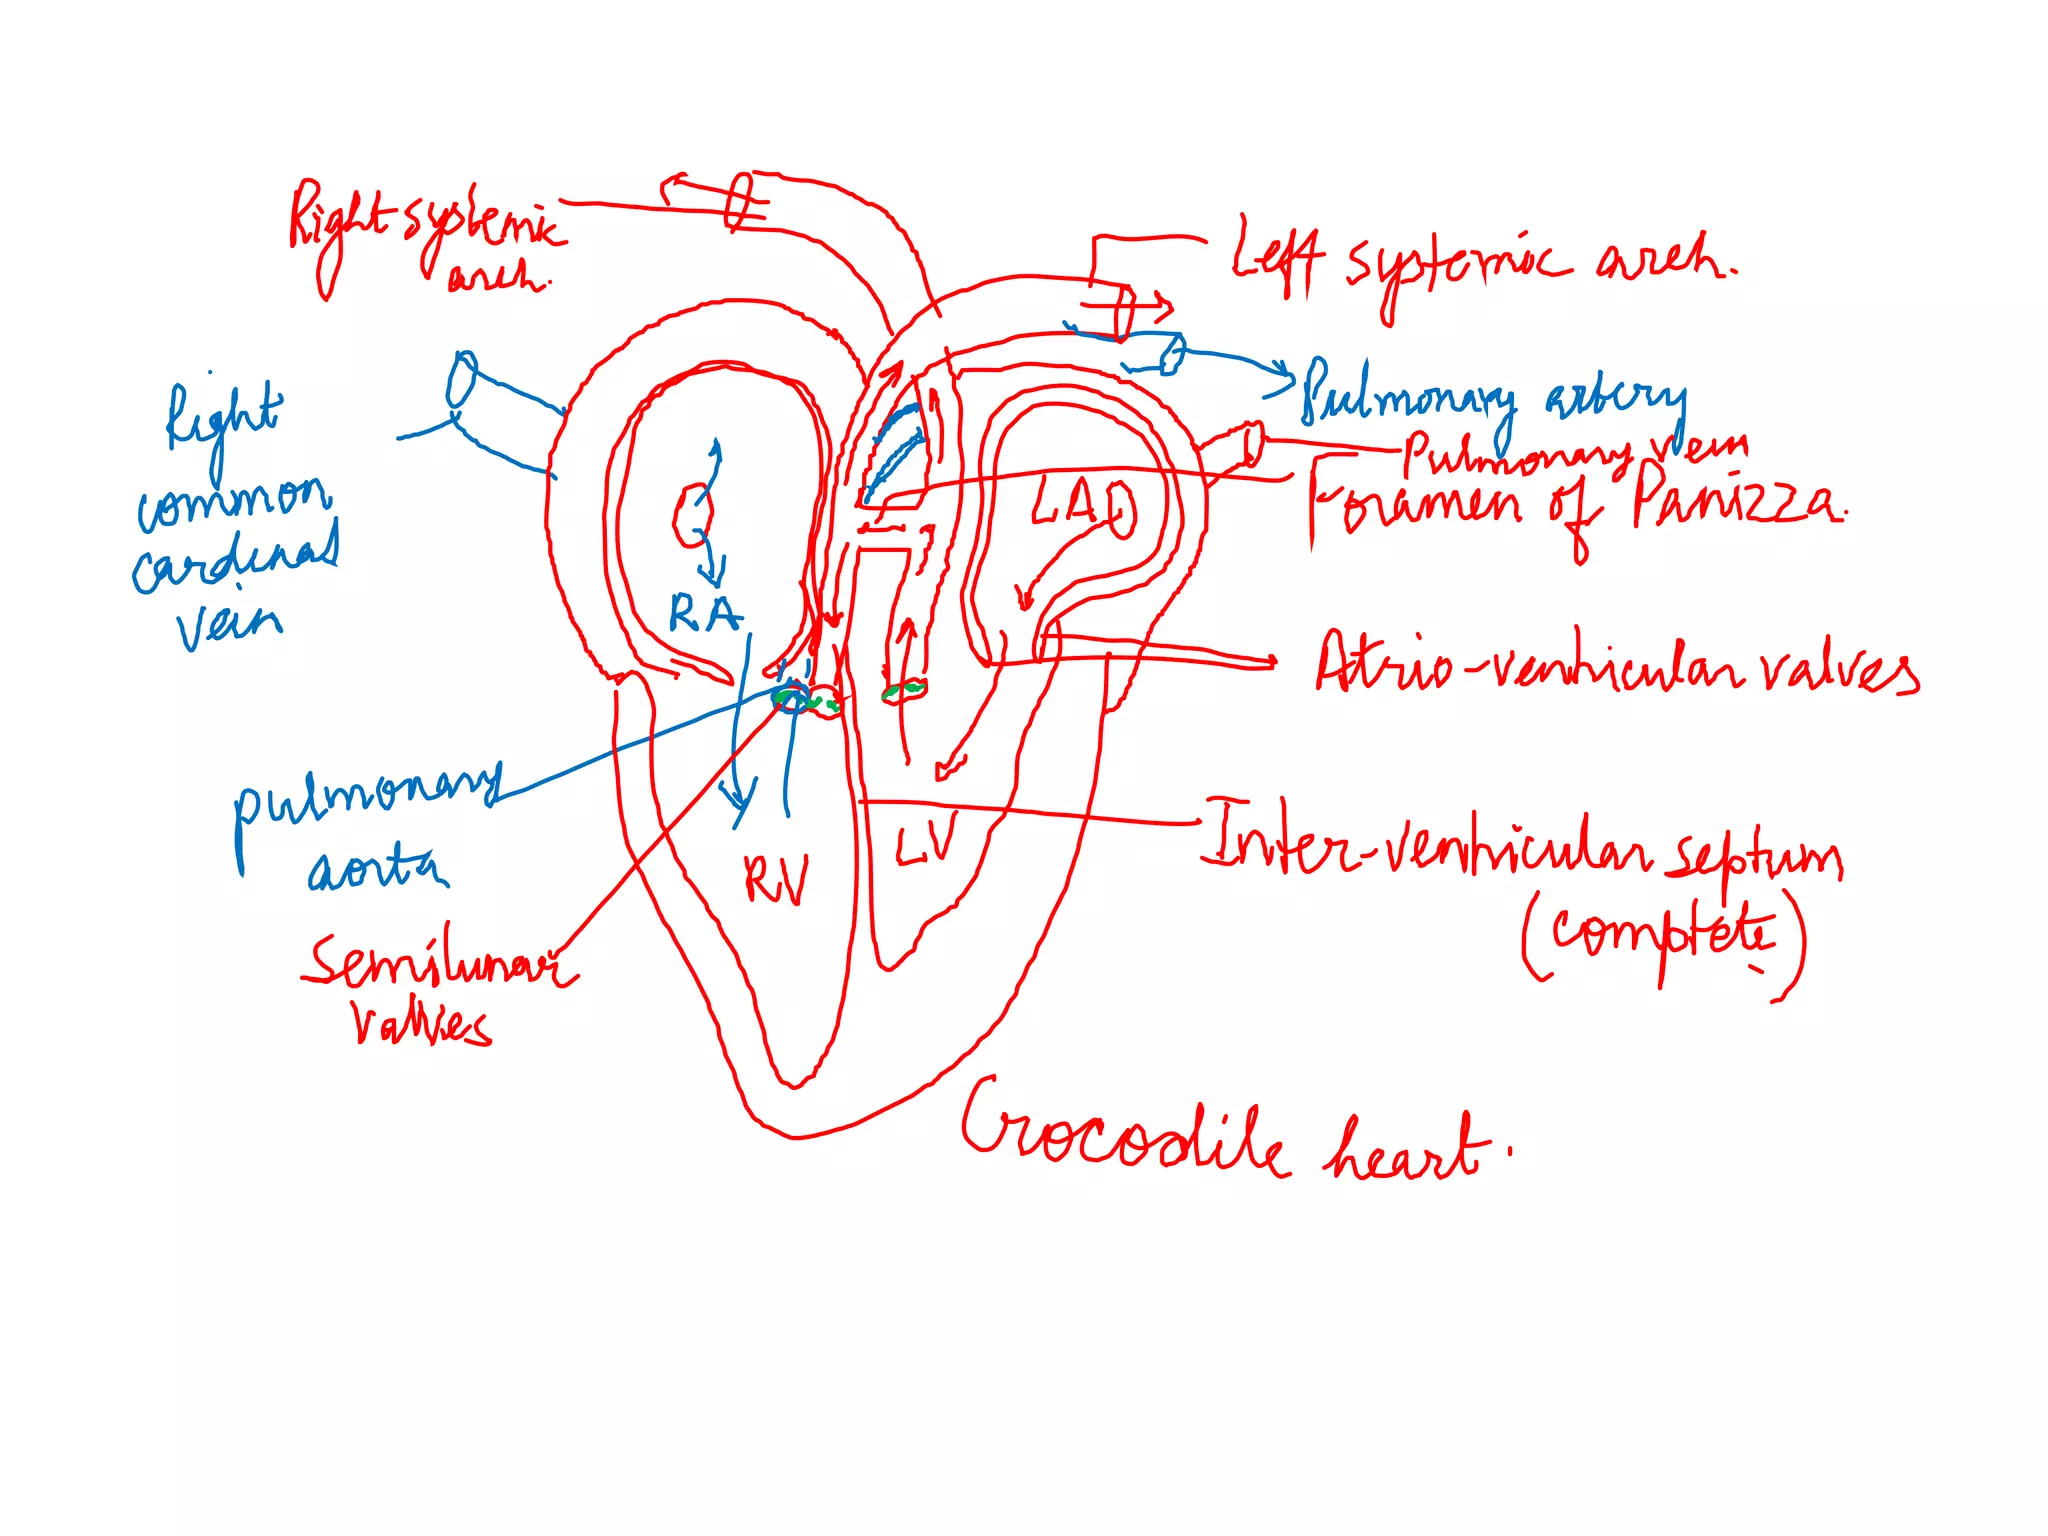 Right systemic
arch.
Left systemic arch.
Right
common
cardinal
vein
Pulmonary artery
Pulmonary vein
Foramen of Panizza.
LA
RA
Atrio-ventricular valves
pulmonary
aorta
Inter-ventricular septum
(complete)
LV
RV
Semilunar
valves
Crocodile heart.